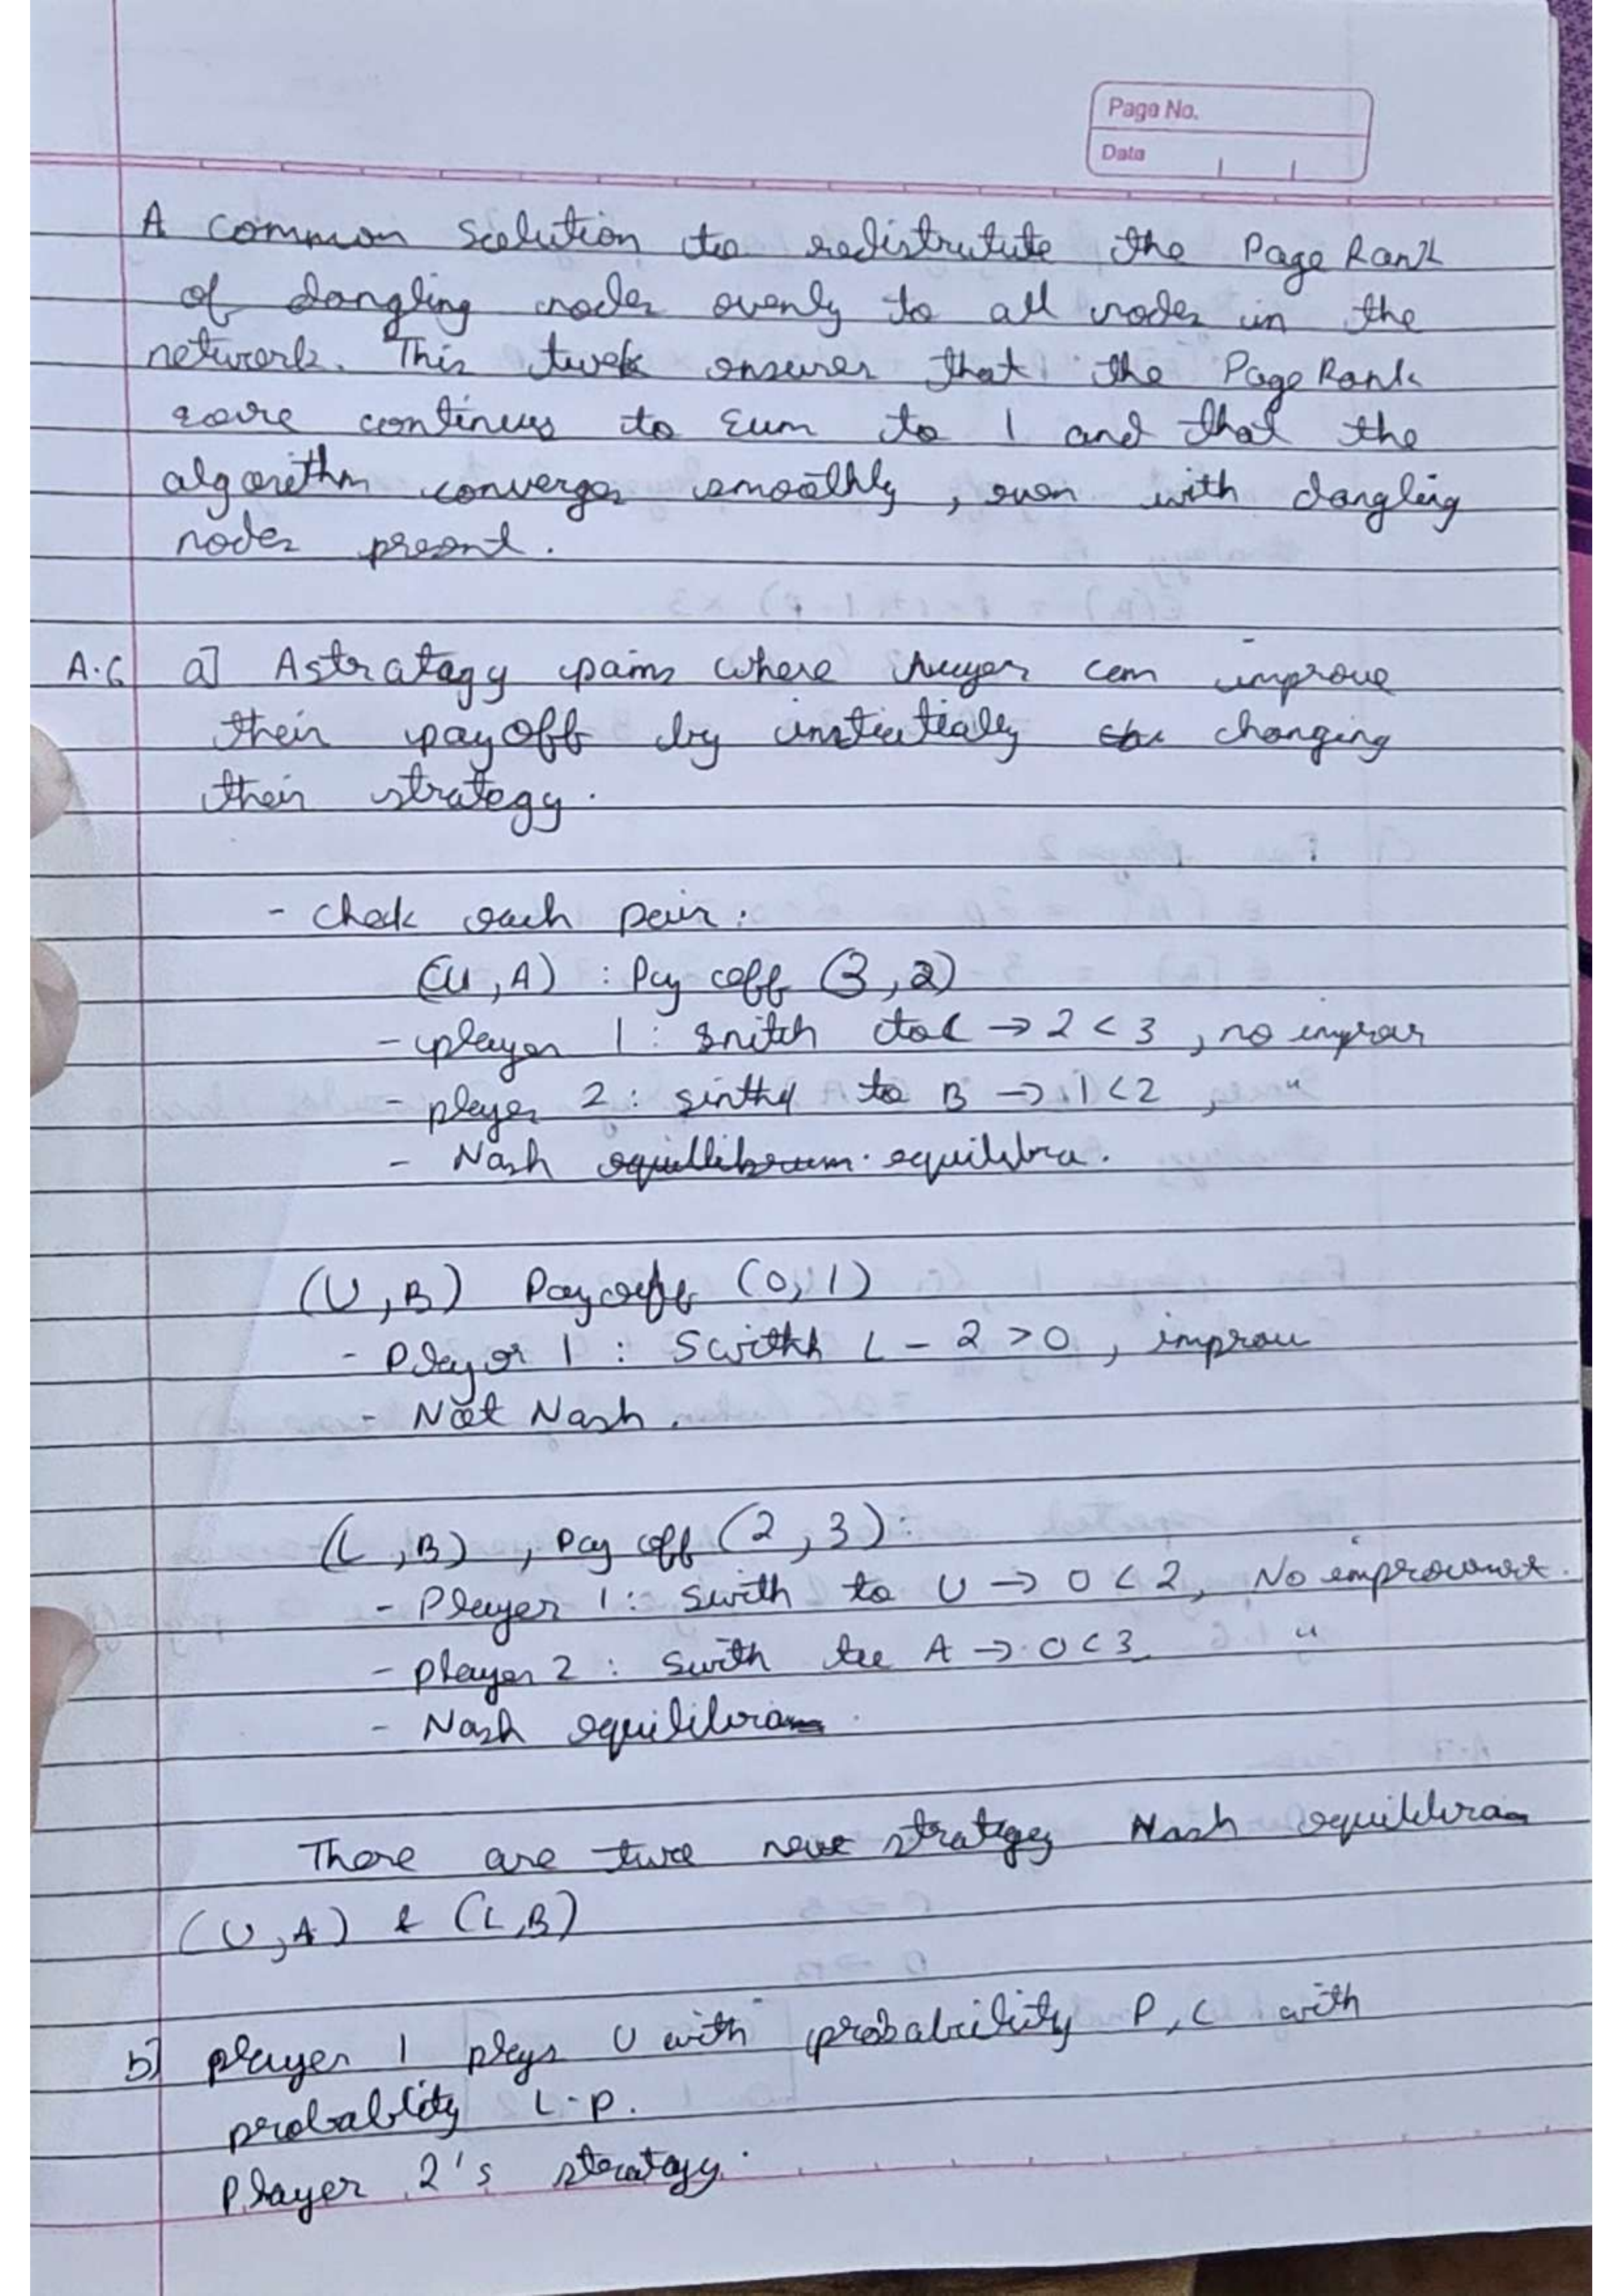 Page No.
Data
A common Solution to redistrutute the Page Rank
of dangling nodes evenly to all nodes in the
network. This twek ensures that the Page Rank
score continues to sum to 1 and that the
algorithm converges smoothly, even with dangling
nodes present.
A.6 a] A stratagy pairs where can improve
their payoff by changing
their strategy.
- Chek each pair:
(U, A) : Pay coff (3, 2)
- player 1 : Snitch to L → 2 < 3, no improv
- player 2 : sinthd to B → 1 < 2, "
- Nash equilibra.
(U, B) Paycoff (0, 1)
- Player 1 : Swithh L - 2 > 0, improu
- Not Nash.
(L, B), Pay off (2, 3):
- Player 1: Swith to U → 0 < 2, No improvement.
- player 2 : Swith to A → 0 < 3 "
- Nash equilibria
There are two strategy Nash equilibria
(U, A) & (L, B)
b] player 1 plays U with probability P, L with
probablity 1-p.
Player 2's stratagy.